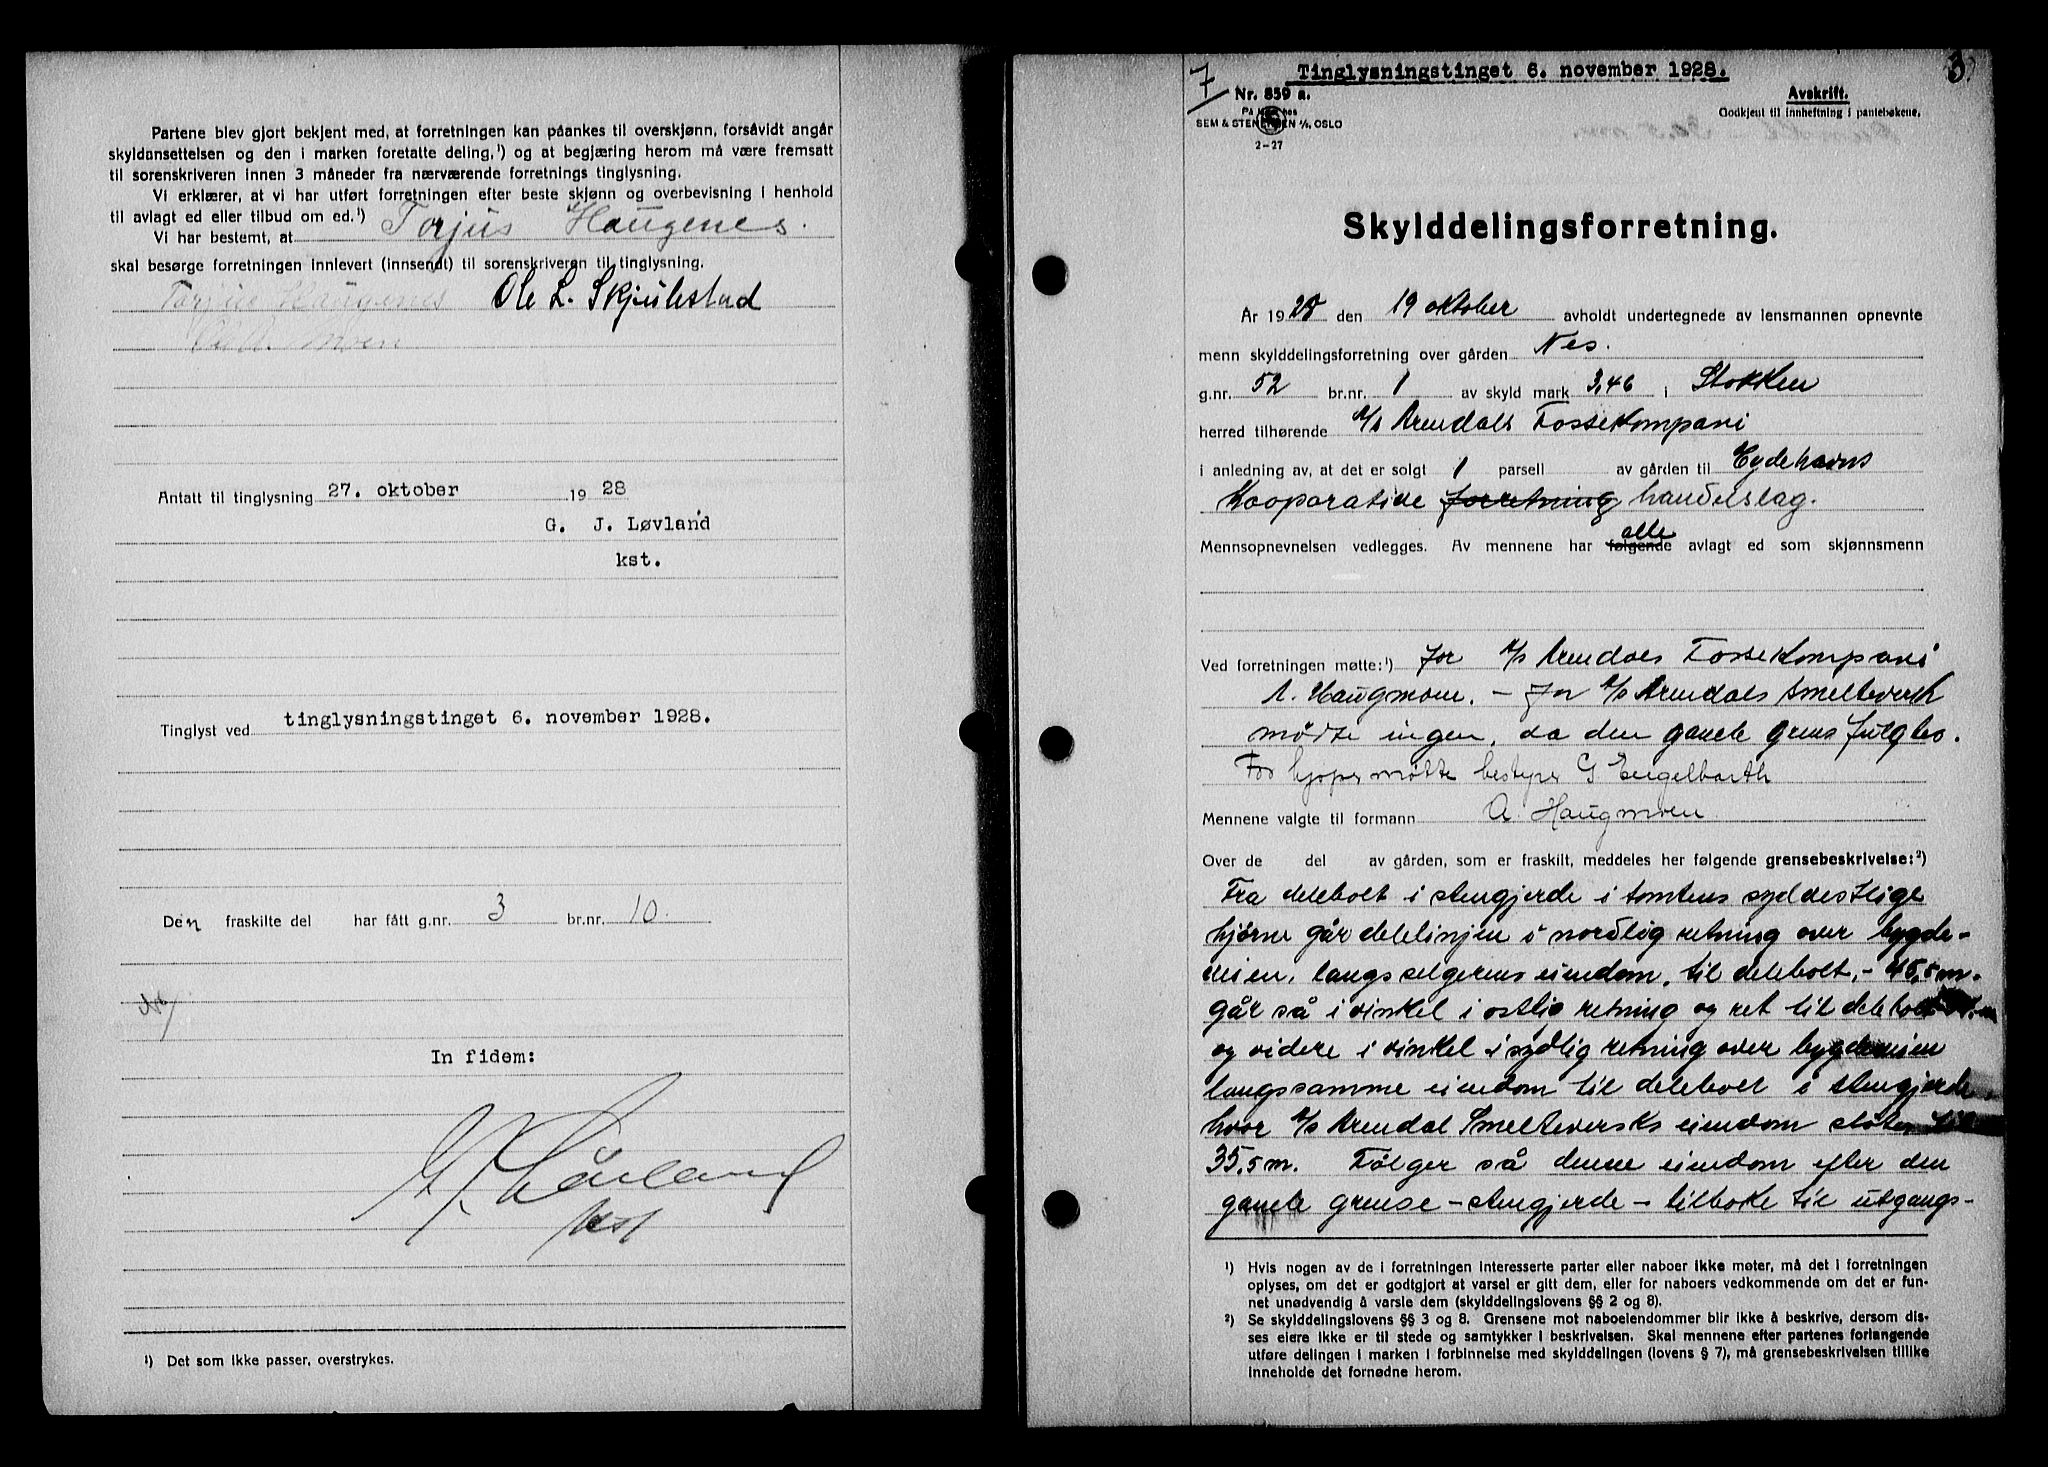 Partene blev gjort bekjent med, at forretningen kan påankes til overskjønn, forsåvidt angår
skyldansettelsen og den i marken foretatte deling,¹) og at begjæring herom må være fremsatt
til sorenskriveren innen 3 måneder fra nærværende forretnings tinglysning.
Vi erklærer, at vi har utført forretningen efter beste skjønn og overbevisning i henhold
til avlagt ed eller tilbud om ed.¹)
Vi har bestemt, at Torjus Haugenes.
skal besørge forretningen innlevert (innsendt) til sorenskriveren til tinglysning.
Torjus Haugenes Ole L. Skjulestad
Moen
Antatt til tinglysning 27. oktober 1928
G. J. Løvland
kst.
Tinglyst ved tinglysningstinget 6. november 1928.
Den fraskilte del har fått g.nr. 3 br.nr. 10.
In fidem:
G J Løvland
kst
¹) Det som ikke passer, overstrykes.
7 Tinglysningstinget 6. november 1928. 3.
Nr. 859 a.
SEM & STENERSEN A/S, OSLO
2-27
Avskrift.
Godkjent til innheftning i pantebøkene.
Skylddelingsforretning.
År 1928 den 19 oktober avholdt undertegnede av lensmannen opnevnte
menn skylddelingsforretning over gården Nes.
g.nr. 52 br.nr. 1 av skyld mark 3,46 i Stokken
herred tilhørende A/s Arendals Fossekompani
i anledning av, at det er solgt 1 parsell av gården til Eydehavns
Kooporative forretning handelslag.
alle
Mennsopnevnelsen vedlegges. Av mennene har følgende avlagt ed som skjønnsmenn
Ved forretningen møtte:¹) for A/s Arendals Fossekompani
A. Haugmoen. - for A/s Arendals Smelteverk
mødte ingen, da den gamle grens fulgtes.
For kjøper møtte bestyrer G Engelbarth
Mennene valgte til formann A. Haugmoen
Over de del av gården, som er fraskilt, meddeles her følgende grensebeskrivelse:²)
Fra delebolt i stengjerde i tomtens syddestlige
hjørne går delelinjen i nordlig retning over bygde-
veien, langs selgerens eiendom, til delebolt, - 45,5 m.
går så i vinkel i ostlig retning og ret til delebolt
og videre i vinkel i sydlig retning over bygdeveien
langs samme eiendom til delebolt i stengjerde,
hvor A/s Arendal Smelteverks eiendom støter til
35,5 m. Følger så denne eiendom efter den
gamle grense - stengjerde - tilbake til utgangs-
¹) Hvis nogen av de i forretningen interesserte parter eller naboer ikke møter, må det i forretningen
oplyses, om det er godtgjort at varsel er gitt dem, eller for naboers vedkommende om det er fun-
net unødvendig å varsle dem (skylddelingslovens §§ 2 og 8).
²) Se skylddelingslovens §§ 3 og 8. Grensene mot naboeiendommer blir ikke å beskrive, dersom dis-
ses eiere ikke er til stede og samtykker i beskrivelsen. Skal mennene efter partenes forlangende
utføre delingen i marken i forbinnelse med skylddelingen (lovens § 7), må grensebeskrivelsen tillike
inneholde det fornødne herom.